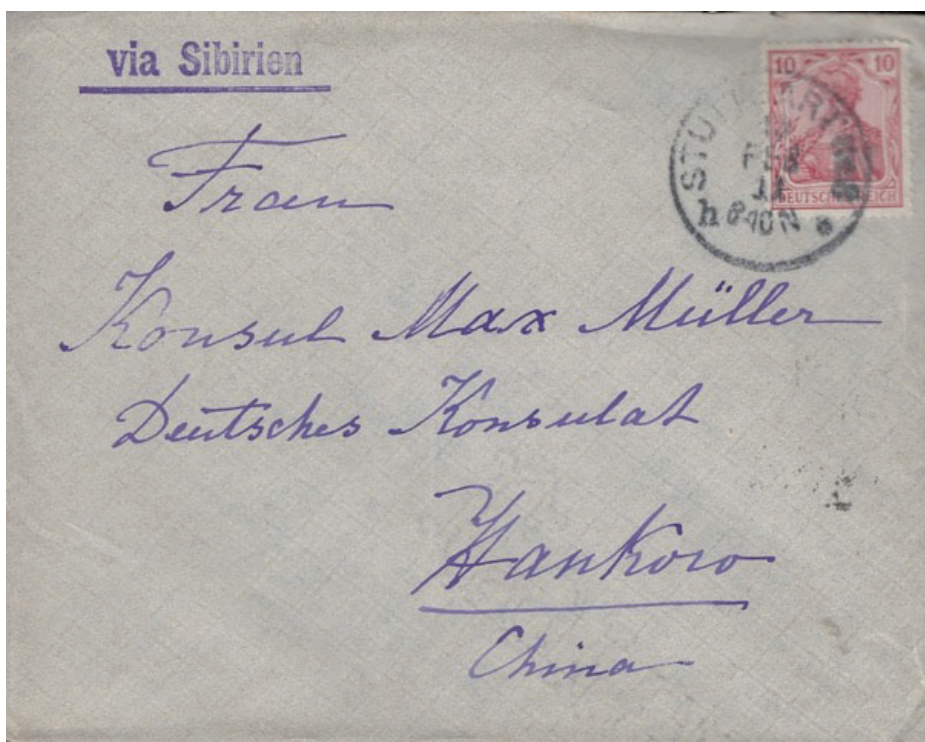 via Sibirien
10 10
DEUTSCHES REICH
STUTTGART
FEB
11
h 8-10 N
Frau
Konsul Max Müller
Deutsches Konsulat
Hankow
China